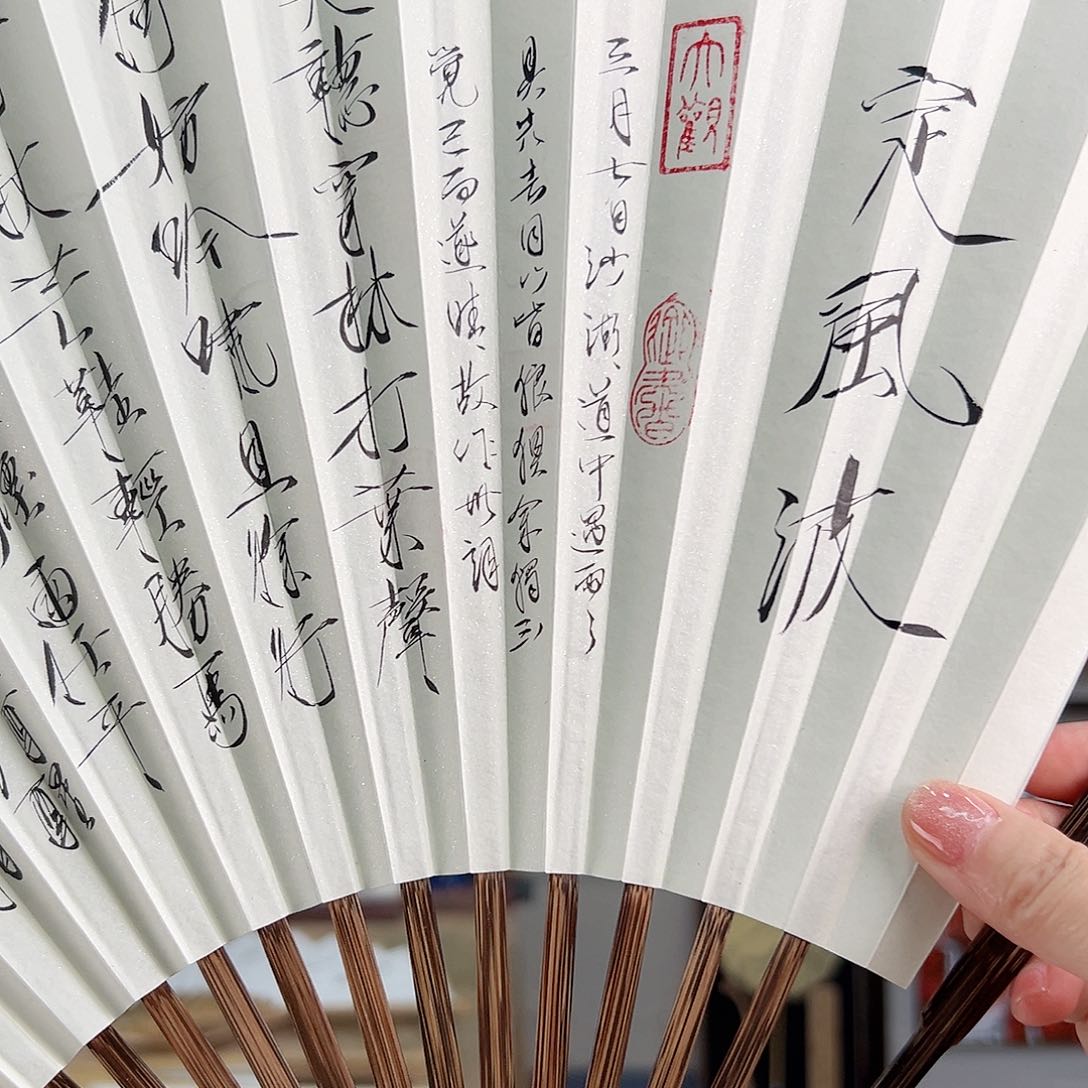 定風波
大觀
御書
三月七日沙湖道中遇雨々
具先去同行皆狼狽余獨不
覺已而遂晴故作此詞
莫聽穿林打葉聲
何妨吟嘯且徐行
杖芒鞋輕勝馬
煙雨任平
酒醒